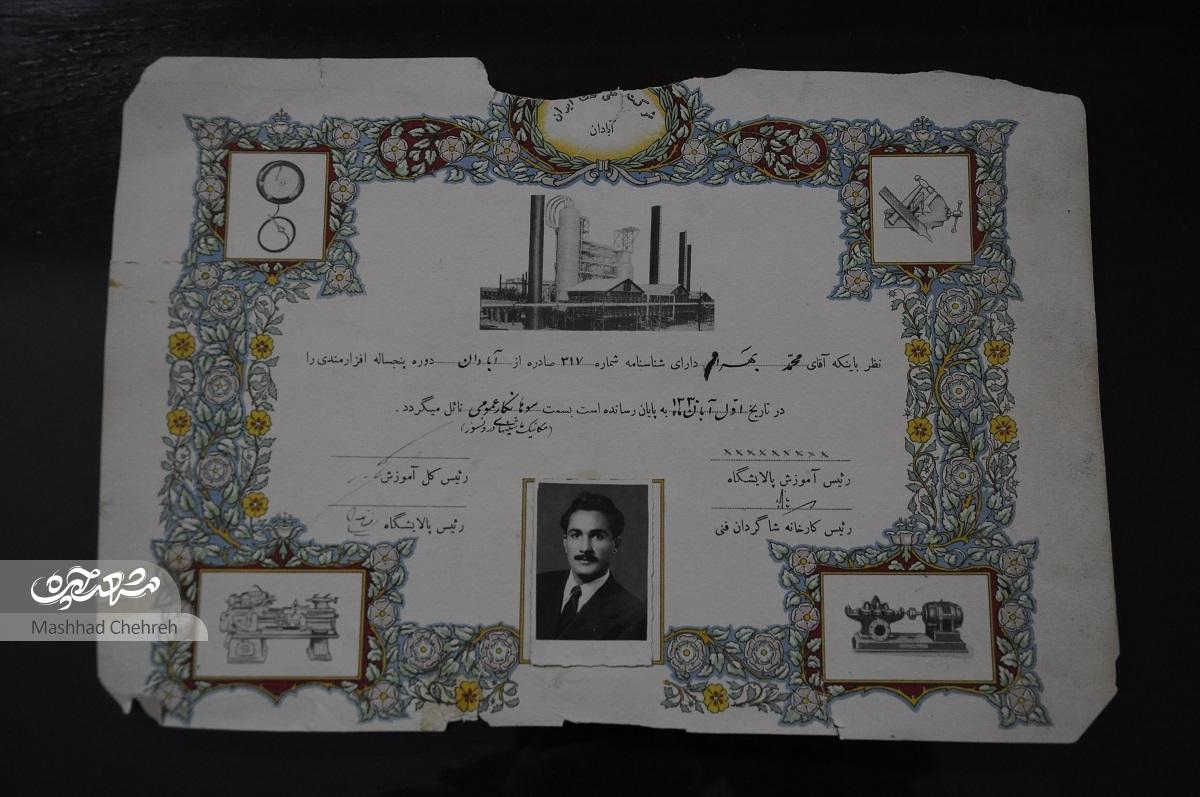 شرکت ملی نفت ایران
آبادان
نظر باینکه آقای محمد بهرام دارای شناسنامه شماره ۳۱۷ صادره از آبادان دوره پنجساله افزارمندی را
در تاریخ اول آبان ماه به پایان رسانده است بسمت سوهانکار عمومی نائل میگردد .
(مکانیک ماشینهای درونسوز)
xxxxxxxxx
رئیس آموزش پالایشگاه
رئیس کل آموزش
رئیس کارخانه شاگردان فنی
رئیس پالایشگاه
مشهد چهره
Mashhad Chehreh